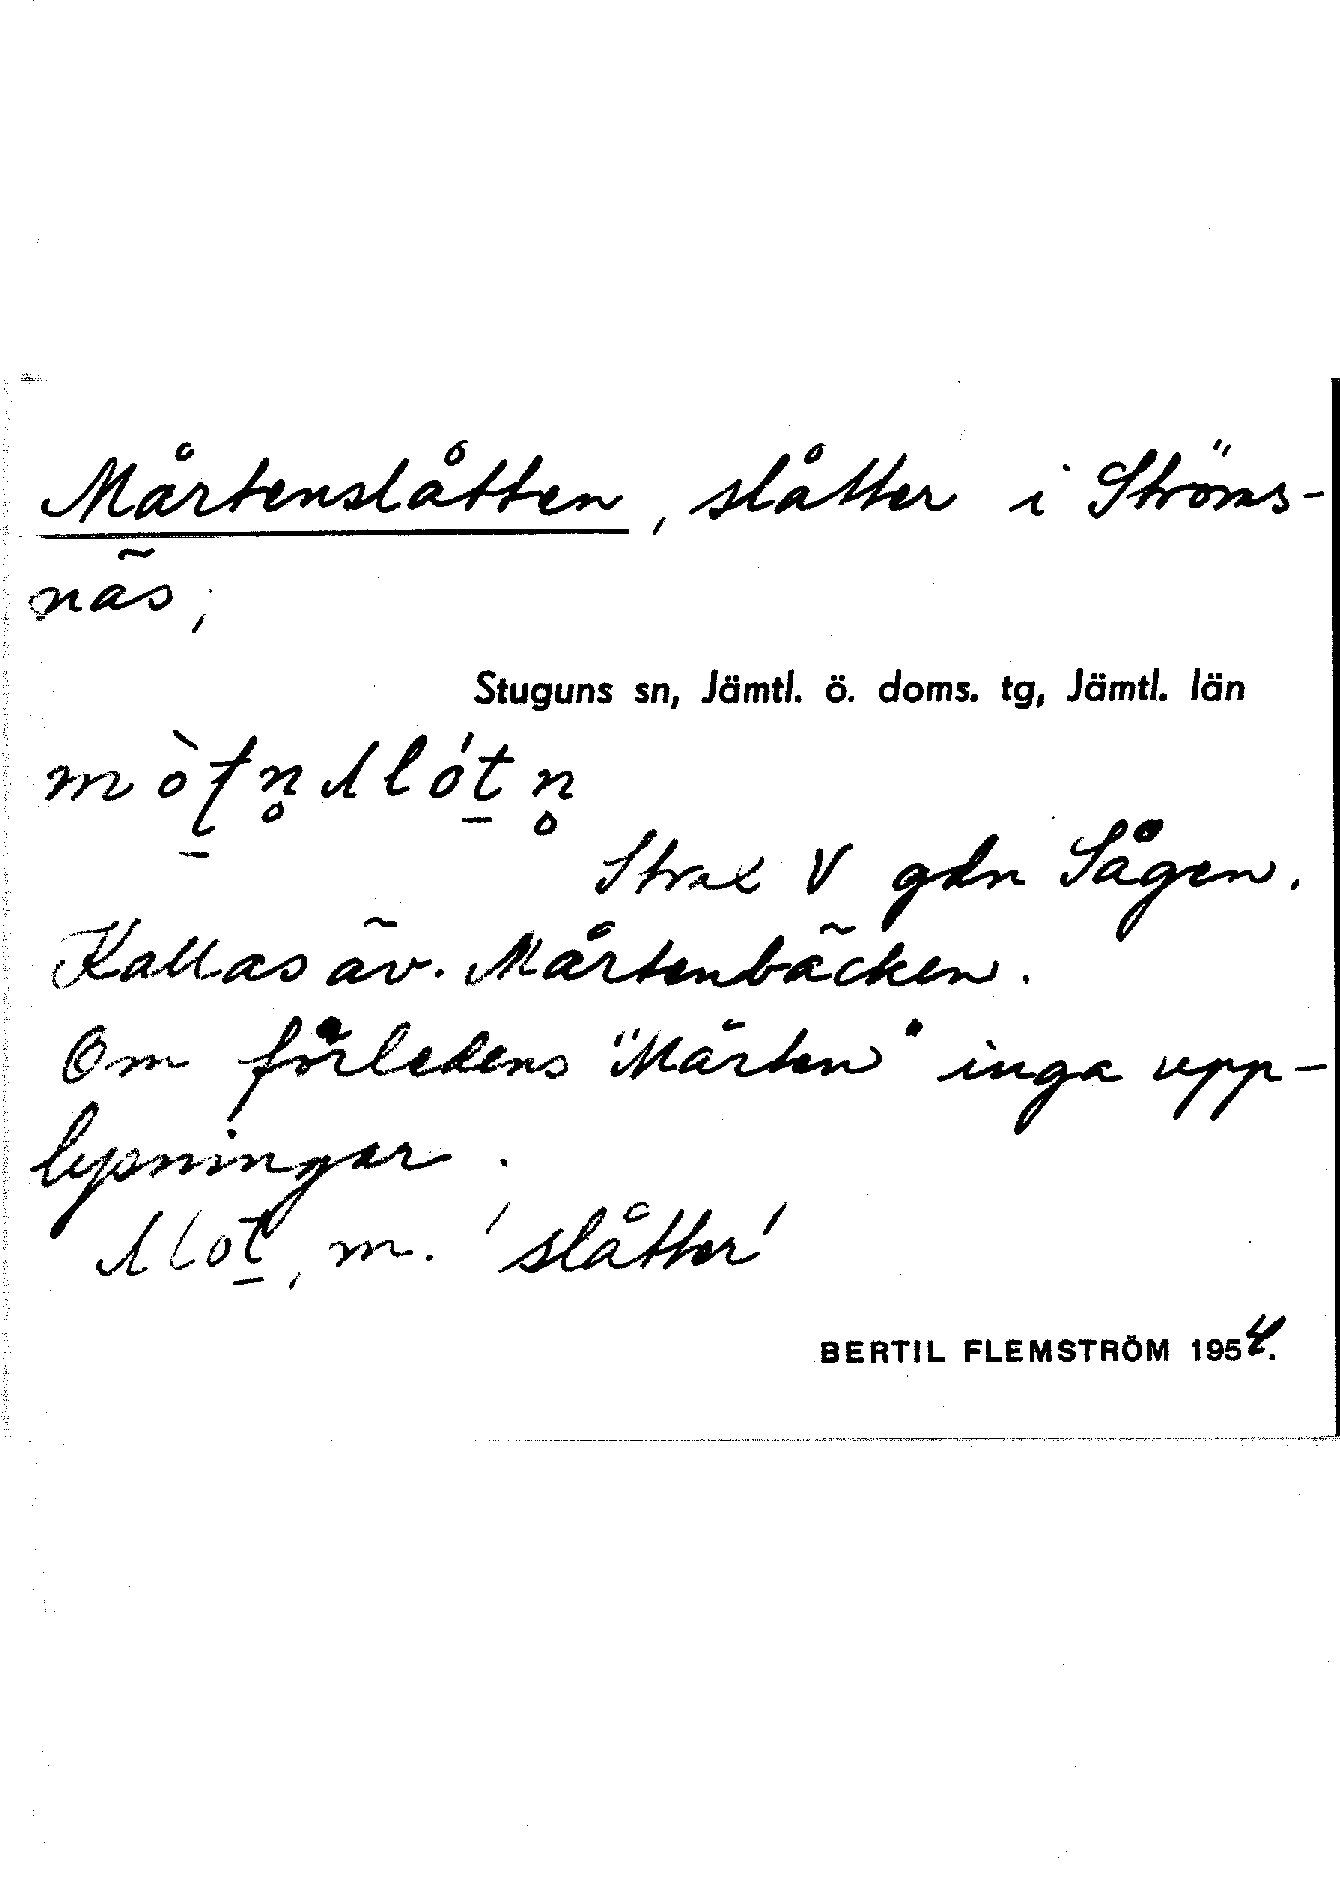 Mårtenslåtten, slåtter i Ströms-
näs,
Stuguns sn, Jämtl. ö. doms. tg, Jämtl. län
Strax V gdn Sågen.
Kallas äv. Mårtenbäcken.
Om förledens "Mårten" inga upp-
lysningar.
slot, m. 'slåtter'
BERTIL FLEMSTRÖM 1954.